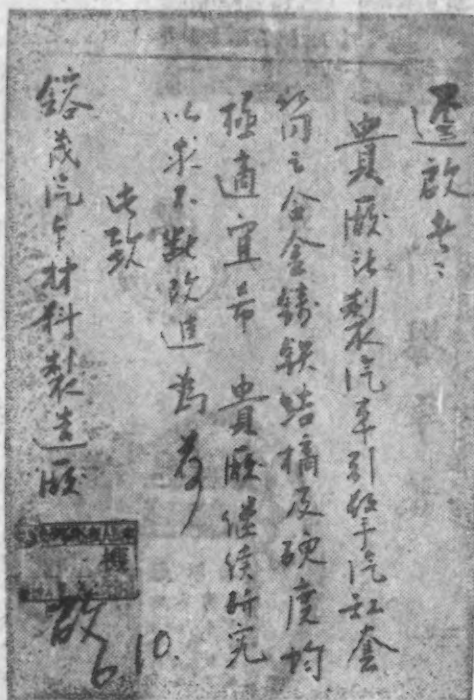 逕啟者：
貴廠許製汽車引擎汽缸套
筒之合金鑄鉄结構及硬度均
極適宜希 貴廠継续研究
以求不斷改進為荷
此致
鎔茂汽车材料製造廠
啟
6.10.